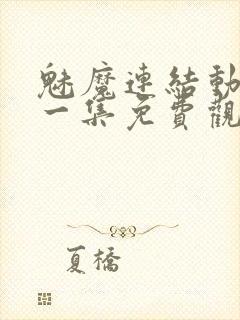 魅魔連結動
一集免費觀
夏橋